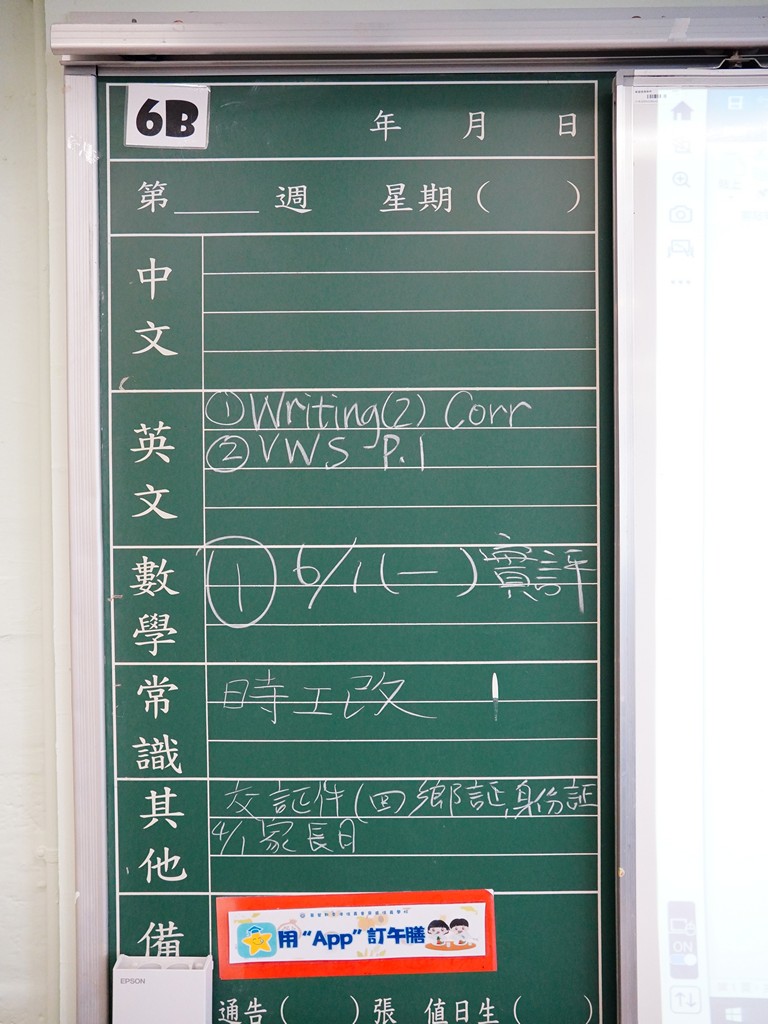 6B
年 月 日
第____週 星期( )
中文
英文
①Writing(2) Corr
②VWS P.1
數學
① 6/1(一)實評
常識
時工改
其他
交証件(回鄉証,身份証
4/1家長日
備
用“App”訂午膳
EPSON
通告( )張 值日生( )
ON